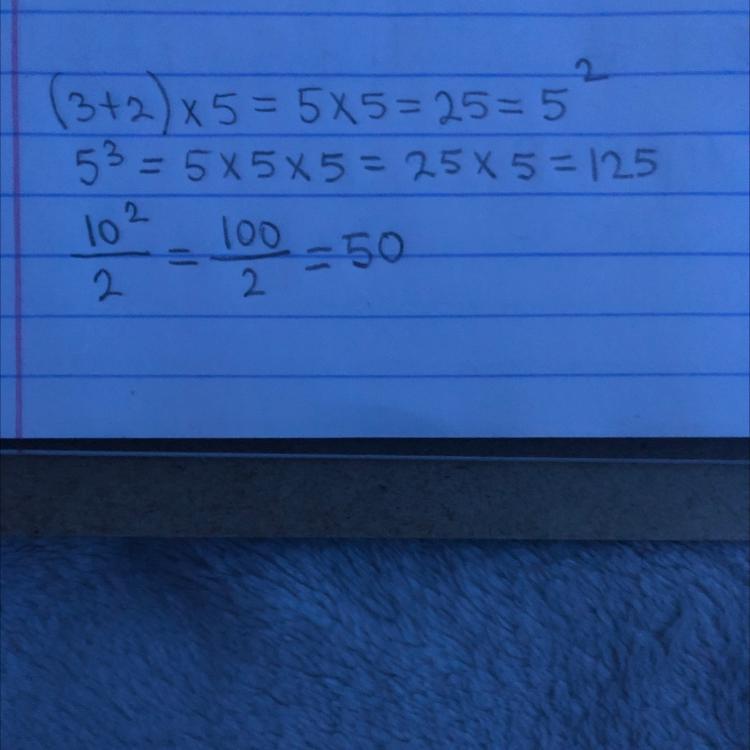 (3+2) × 5 = 5 × 5 = 25 = 5²
5³ = 5 × 5 × 5 = 25 × 5 = 125
10²/2 = 100/2 = 50